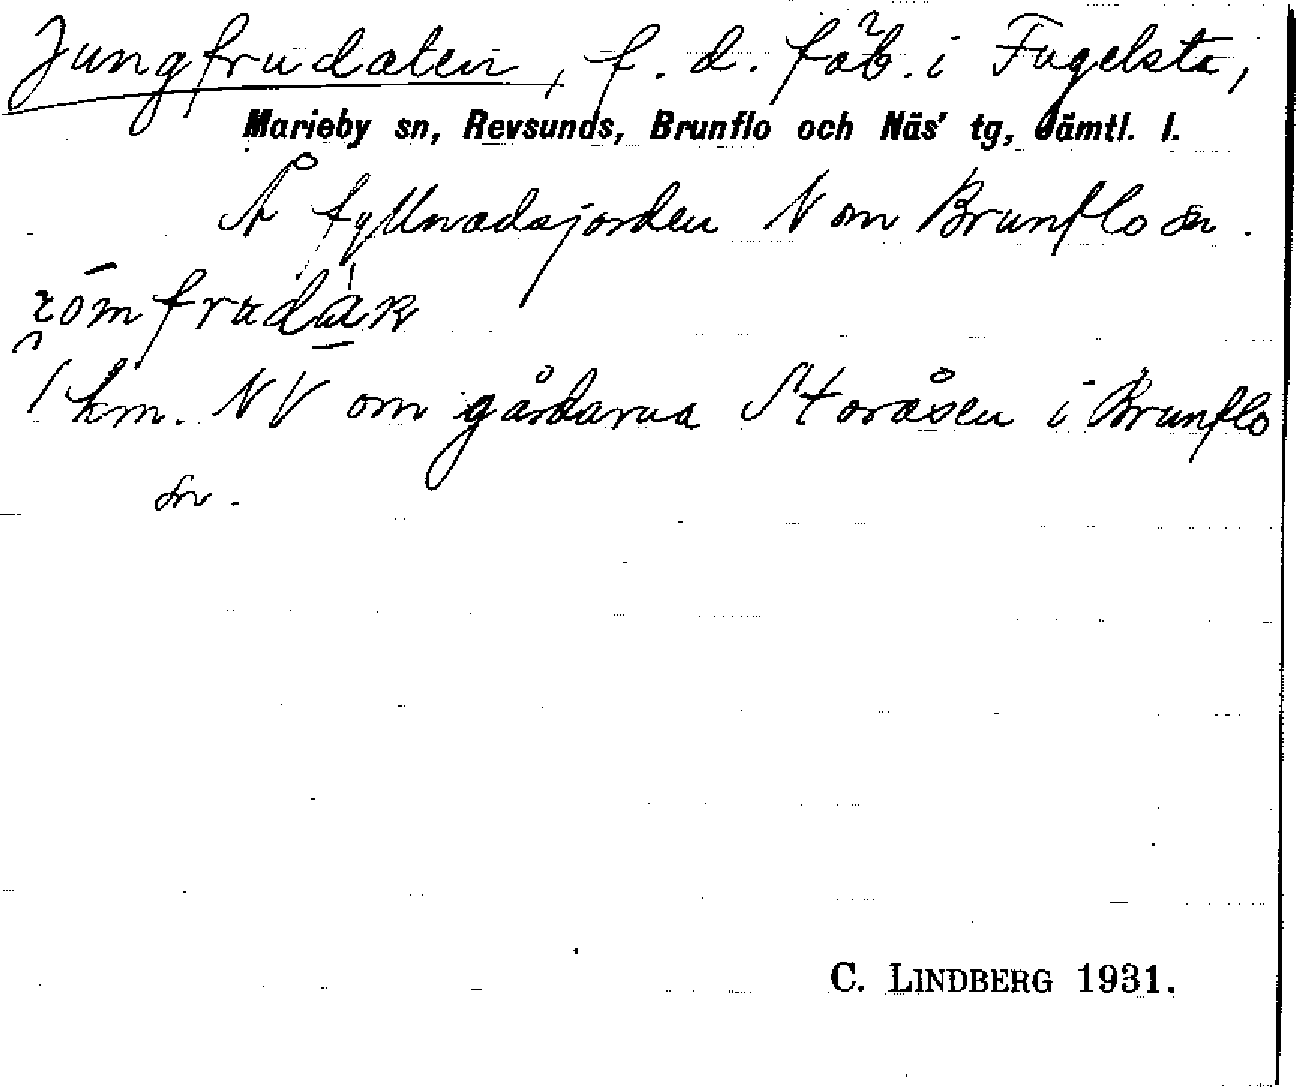 Jungfrudalen, f. d. fäb. i Fugelsta,
Marieby sn, Revsunds, Brunflo och Näs' tg, Jämtl. l.
Å fyllnadsjorden N om Brunflo sn.
1 km. NV om gårdarna Storåsen i Brunflo
sn.
C. LINDBERG 1931.